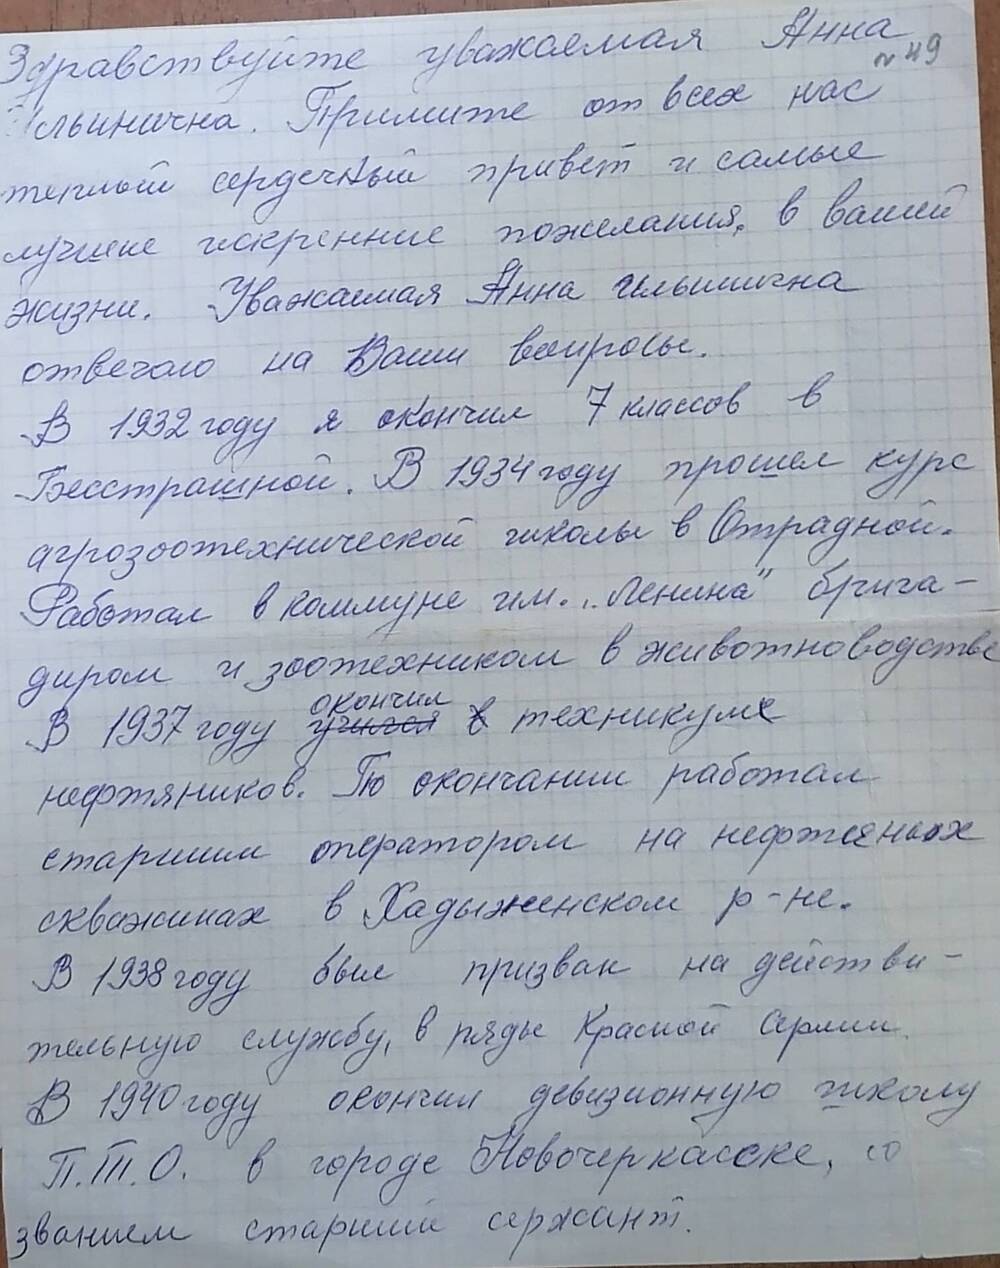 Здравствуйте уважаемая Анна
№ 49
Ильинична. Примите от всех нас
теплый сердечный привет и самые
лучшие искренние пожелания, в вашей
жизни. Уважаемая Анна Ильинична
отвечаю на Ваши вопросы.
В 1932 году я окончил 7 классов в
Бесстрашной. В 1934 году прошел курс
агрозоотехнической школы в Отрадной.
Работал в коммуне им. „Ленина" брига-
диром и зоотехником в животноводстве
В 1937 году окончил учился в техникуме
нефтяников. По окончании работал
старшим оператором на нефтеных
скважинах в Хадыженском р-не.
В 1938 году был призван на действи-
тельную службу, в ряды Красной Армии.
В 1940 году окончил девизионную школу
П.Т.О. в городе Новочеркасске, со
званием старший сержант.